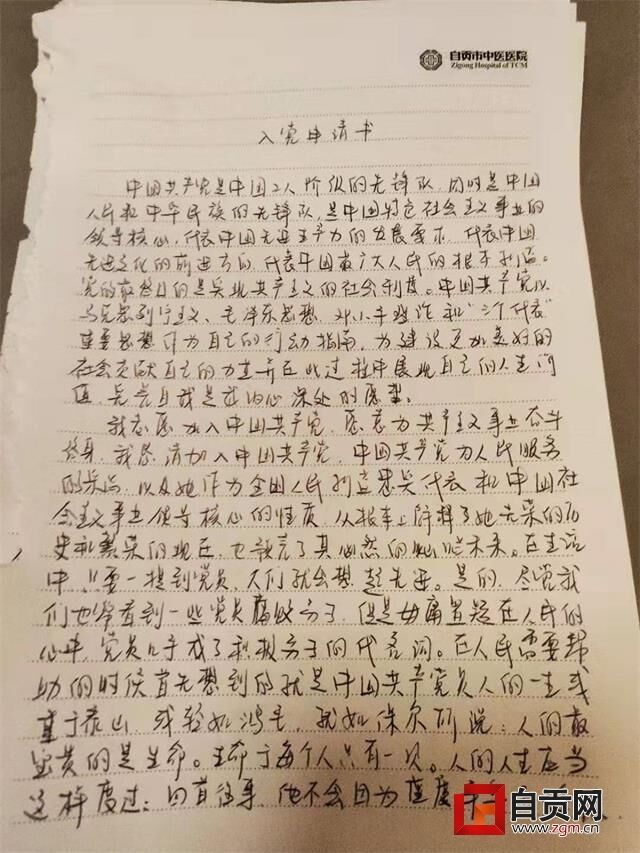 自贡市中医医院
Zigong Hospital of TCM
入党申请书
中国共产党是中国工人阶级的先锋队,同时是中国
人民和中华民族的先锋队,是中国特色社会主义事业的
领导核心,代表中国先进生产力的发展要求,代表中国
先进文化的前进方向,代表中国最广大人民的根本利益。
党的最终目的是实现共产主义的社会制度。中国共产党以
马克思列宁主义、毛泽东思想、邓小平理论和"三个代表"
重要思想作为自己的行动指南,为建设更加美好的
社会贡献自己的力量并在此过程中展现自己的人生价
值,完善自我是我内心深处的愿望。
我志愿加入中国共产党,愿意为共产主义事业奋斗
终身,我恳请加入中国共产党,中国共产党为人民服务
的宗旨,以及她作为全国人民利益忠实代表和中国社
会主义事业领导核心的性质,从根本上诠释了她光荣的历
史和繁荣的现在,也预言了其必然的灿烂未来。在生活
中,只要一提到党员,人们就会想起先进。是的,尽管我
们也常看到一些党员腐败分子,但是毋庸置疑在人民的
心中,党员几乎成了积极分子的代名词。在人民需要帮
助的时候首先想到的就是中国共产党员人的一生或
重于泰山 或轻如鸿毛,就如保尔所说:人的最
宝贵的是生命。生命于每个人只有一次。人的人生应当
这样度过:回首往事,他不会因为虚度
自贡网
www.zgm.cn